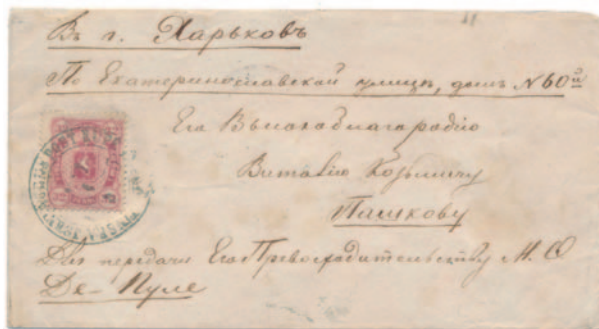 Въ г. Харьковъ
По Екатеринославской улицѣ, домъ N 60й
Его Высокоблагородію
Виталію Козьмичу
Пашкову
Для передачи Его Превосходительству М. Ѳ
Де-Пуле